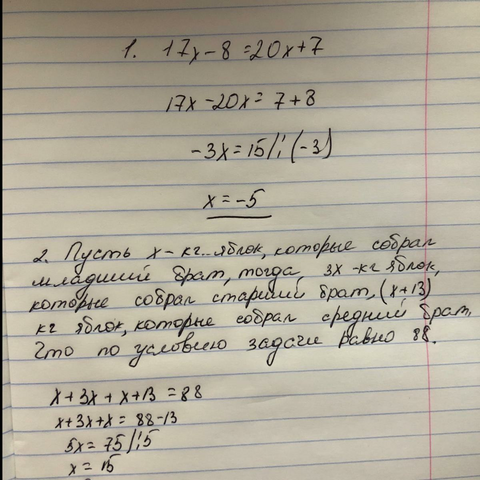 1. 17x-8=20x+7
17x-20x=7+8
-3x=15/:(-3)
x=-5
2. Пусть x-кг яблок, которые собрал
младший брат, тогда 3x-кг яблок,
которые собрал старший брат, (x+13)
кг яблок, которые собрал средний брат.
Что по условию задачи равно 88.
x+3x+x+13=88
x+3x+x=88-13
5x=75/:5
x=15